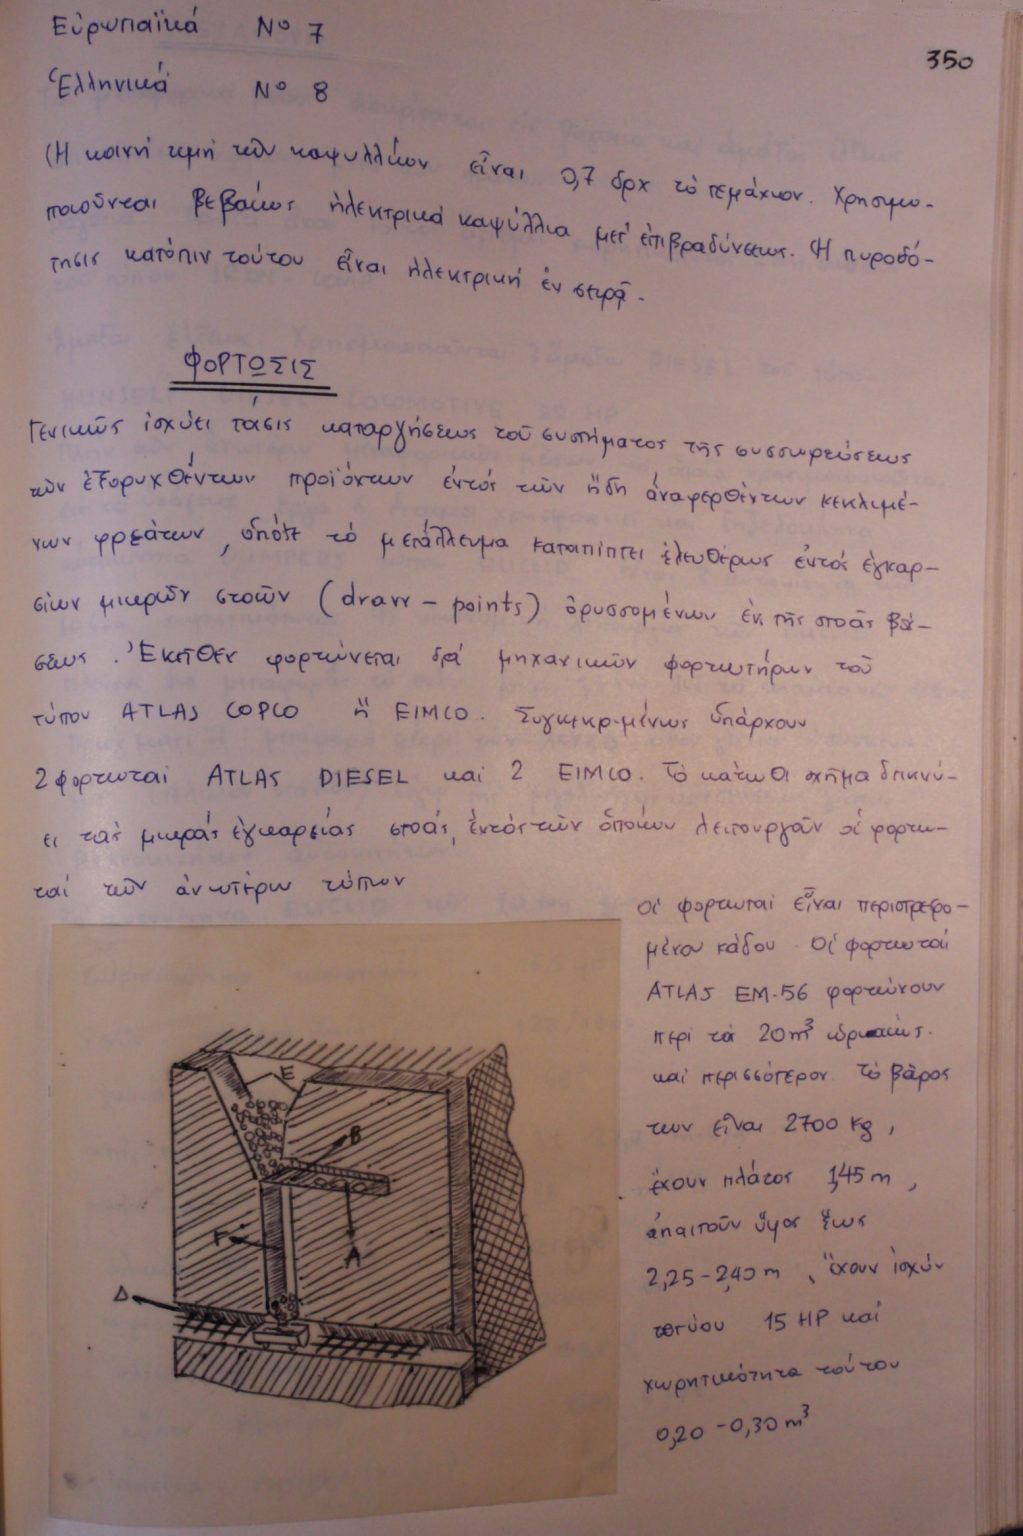 Εὐρωπαϊκά Nº 7
350
Ἑλληνικά Nº 8
(Ἡ κοινή τιμή τῶν καψυλλίων εἶναι 0,7 δρχ τό τεμάχιον. Χρησιμο-
ποιοῦνται βεβαίως ἠλεκτρικά καψύλλια μετ' ἐπιβραδύνσεως. Ἡ πυροδό-
τησις κατόπιν τούτου εἶναι ἠλεκτρική ἐν σειρᾷ.
ΦΟΡΤΩΣΙΣ
Γενικῶς ἰσχύει τάσις καταργήσεως τοῦ συστήματος τῆς συσσωρεύσεως
τῶν ἐξορυχθέντων προϊόντων ἐντός τῶν ἤδη ἀναφερθέντων κεκλιμέ-
νων φρεάτων, ὁπότε τό μετάλλευμα καταπίπτει ἐλευθέρως ἐντός ἐγκαρ-
σίων μικρῶν στοῶν (draw-points) ὀρυσσομένων ἐκ τῆς στοᾶς βά-
σεως. Ἐκεῖθεν φορτώνεται διά μηχανικῶν φορτωτήρων τοῦ
τύπου ATLAS COPCO ἤ EIMCO. Συγκεκριμένως ὑπάρχουν
2 φορτωταί ATLAS DIESEL καί 2 EIMCO. Τό κάτωθι σχῆμα δεικνύ-
ει τάς μικράς ἐγκαρσίας στοάς, ἐντός τῶν ὁποίων λειτουργοῦν οἱ φορτω-
ταί τῶν ἀνωτέρω τύπων
Οἱ φορτωταί εἶναι περιστρεφο-
μένου κάδου. Οἱ φορτωταί
ATLAS EM-56 φορτώνουν
περί τά 20m³ ὡριαίως.
καί περισσότερον. Τό βάρος
των εἶναι 2700 kg,
ἔχουν πλάτος 1,45 m,
ἀπαιτοῦν ὕψος ἕως
2,25-2,40 m, ἔχουν ἰσχύν
15 HP καί
χωρητικότητα τούτου
0,20-0,30 m³
E
B
Γ
A
Δ